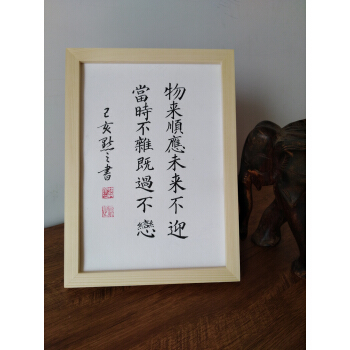 物来順應未来不迎
當時不雜既過不戀
己亥㸃之書